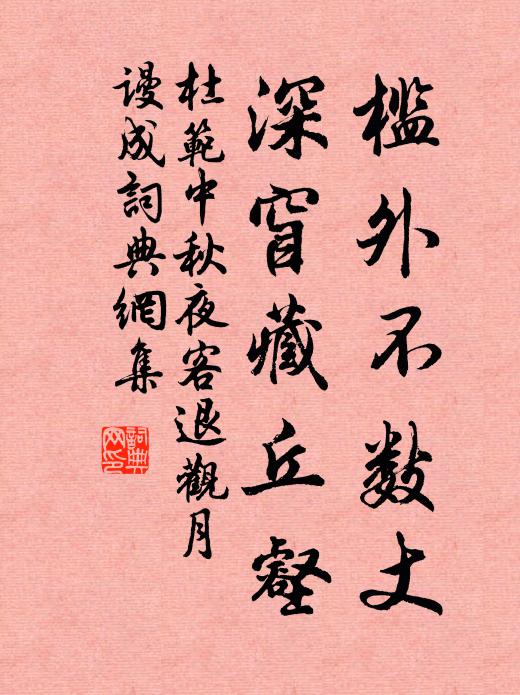 檻外不數丈
深窅藏丘壑
杜範中秋夜客退觀月
謾成詞典網集
詞典
网印